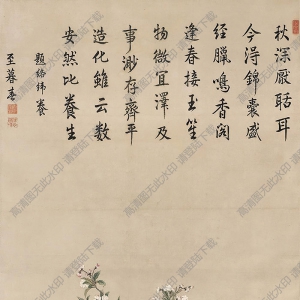 秋深厭聒耳
今淂錦囊盛
經臘鳴香閣
逢春接玉笙
物微宜澤及
事渺存齊平
造化雖云數
安然比養生
題絡緯養
至暮春